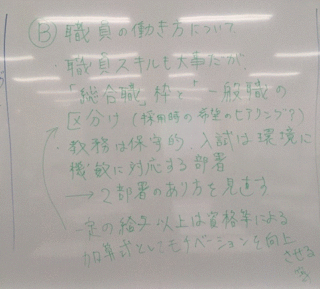 Ⓑ 職員の働き方について
・職員スキルも大事だが、
「総合職」枠と「一般職」の
区分け(採用時の希望のヒアリング?)
・教務は保守的、入試は環境に
機敏に対応する部署
→2部署のあり方を見直す
・一定の給与以上は資格等による
加算式としてモチベーションを向上
させる